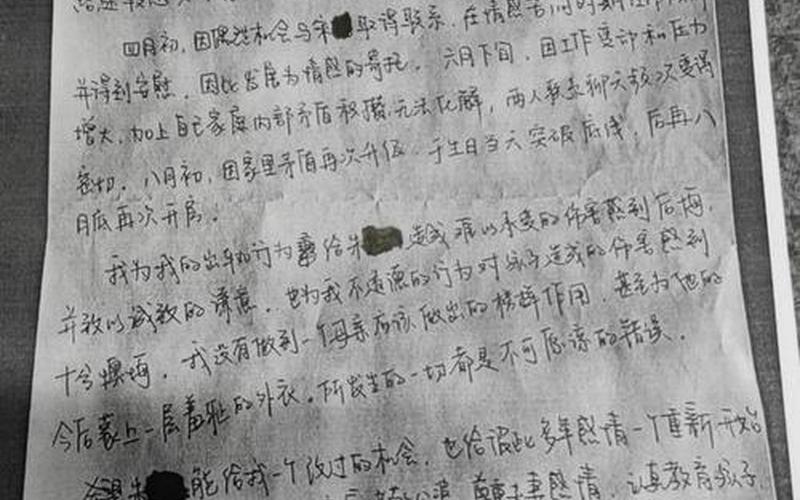 四月初,因偶然机会与宋 取得联系,在情感苦闷的
并得到安慰,因此发展为情感的寄托。六月下旬,因工作变动和压力
增大,加上自己家庭内部矛盾积攒,无法化解,两人联系聊天频次变得
密切。八月初,因家里矛盾再次升级,于生日当天突破底线,后再八
月底再次开房。
我为我的出轨行为 给朱 造成难以承受的伤害感到后悔,
并致以诚致的谦意,也为我不道德的行为对孩子造成的伤害感到
十分懊悔,我没有做到一个母亲应该做出的榜样作用,甚至为他的
今后蒙上一层羞耻的外衣。所发生的一切都是不可原谅的错误。
希望朱 能给我一个改过的机会,也给彼此多年感情一个重新开始
妻感情,认真教育孩子